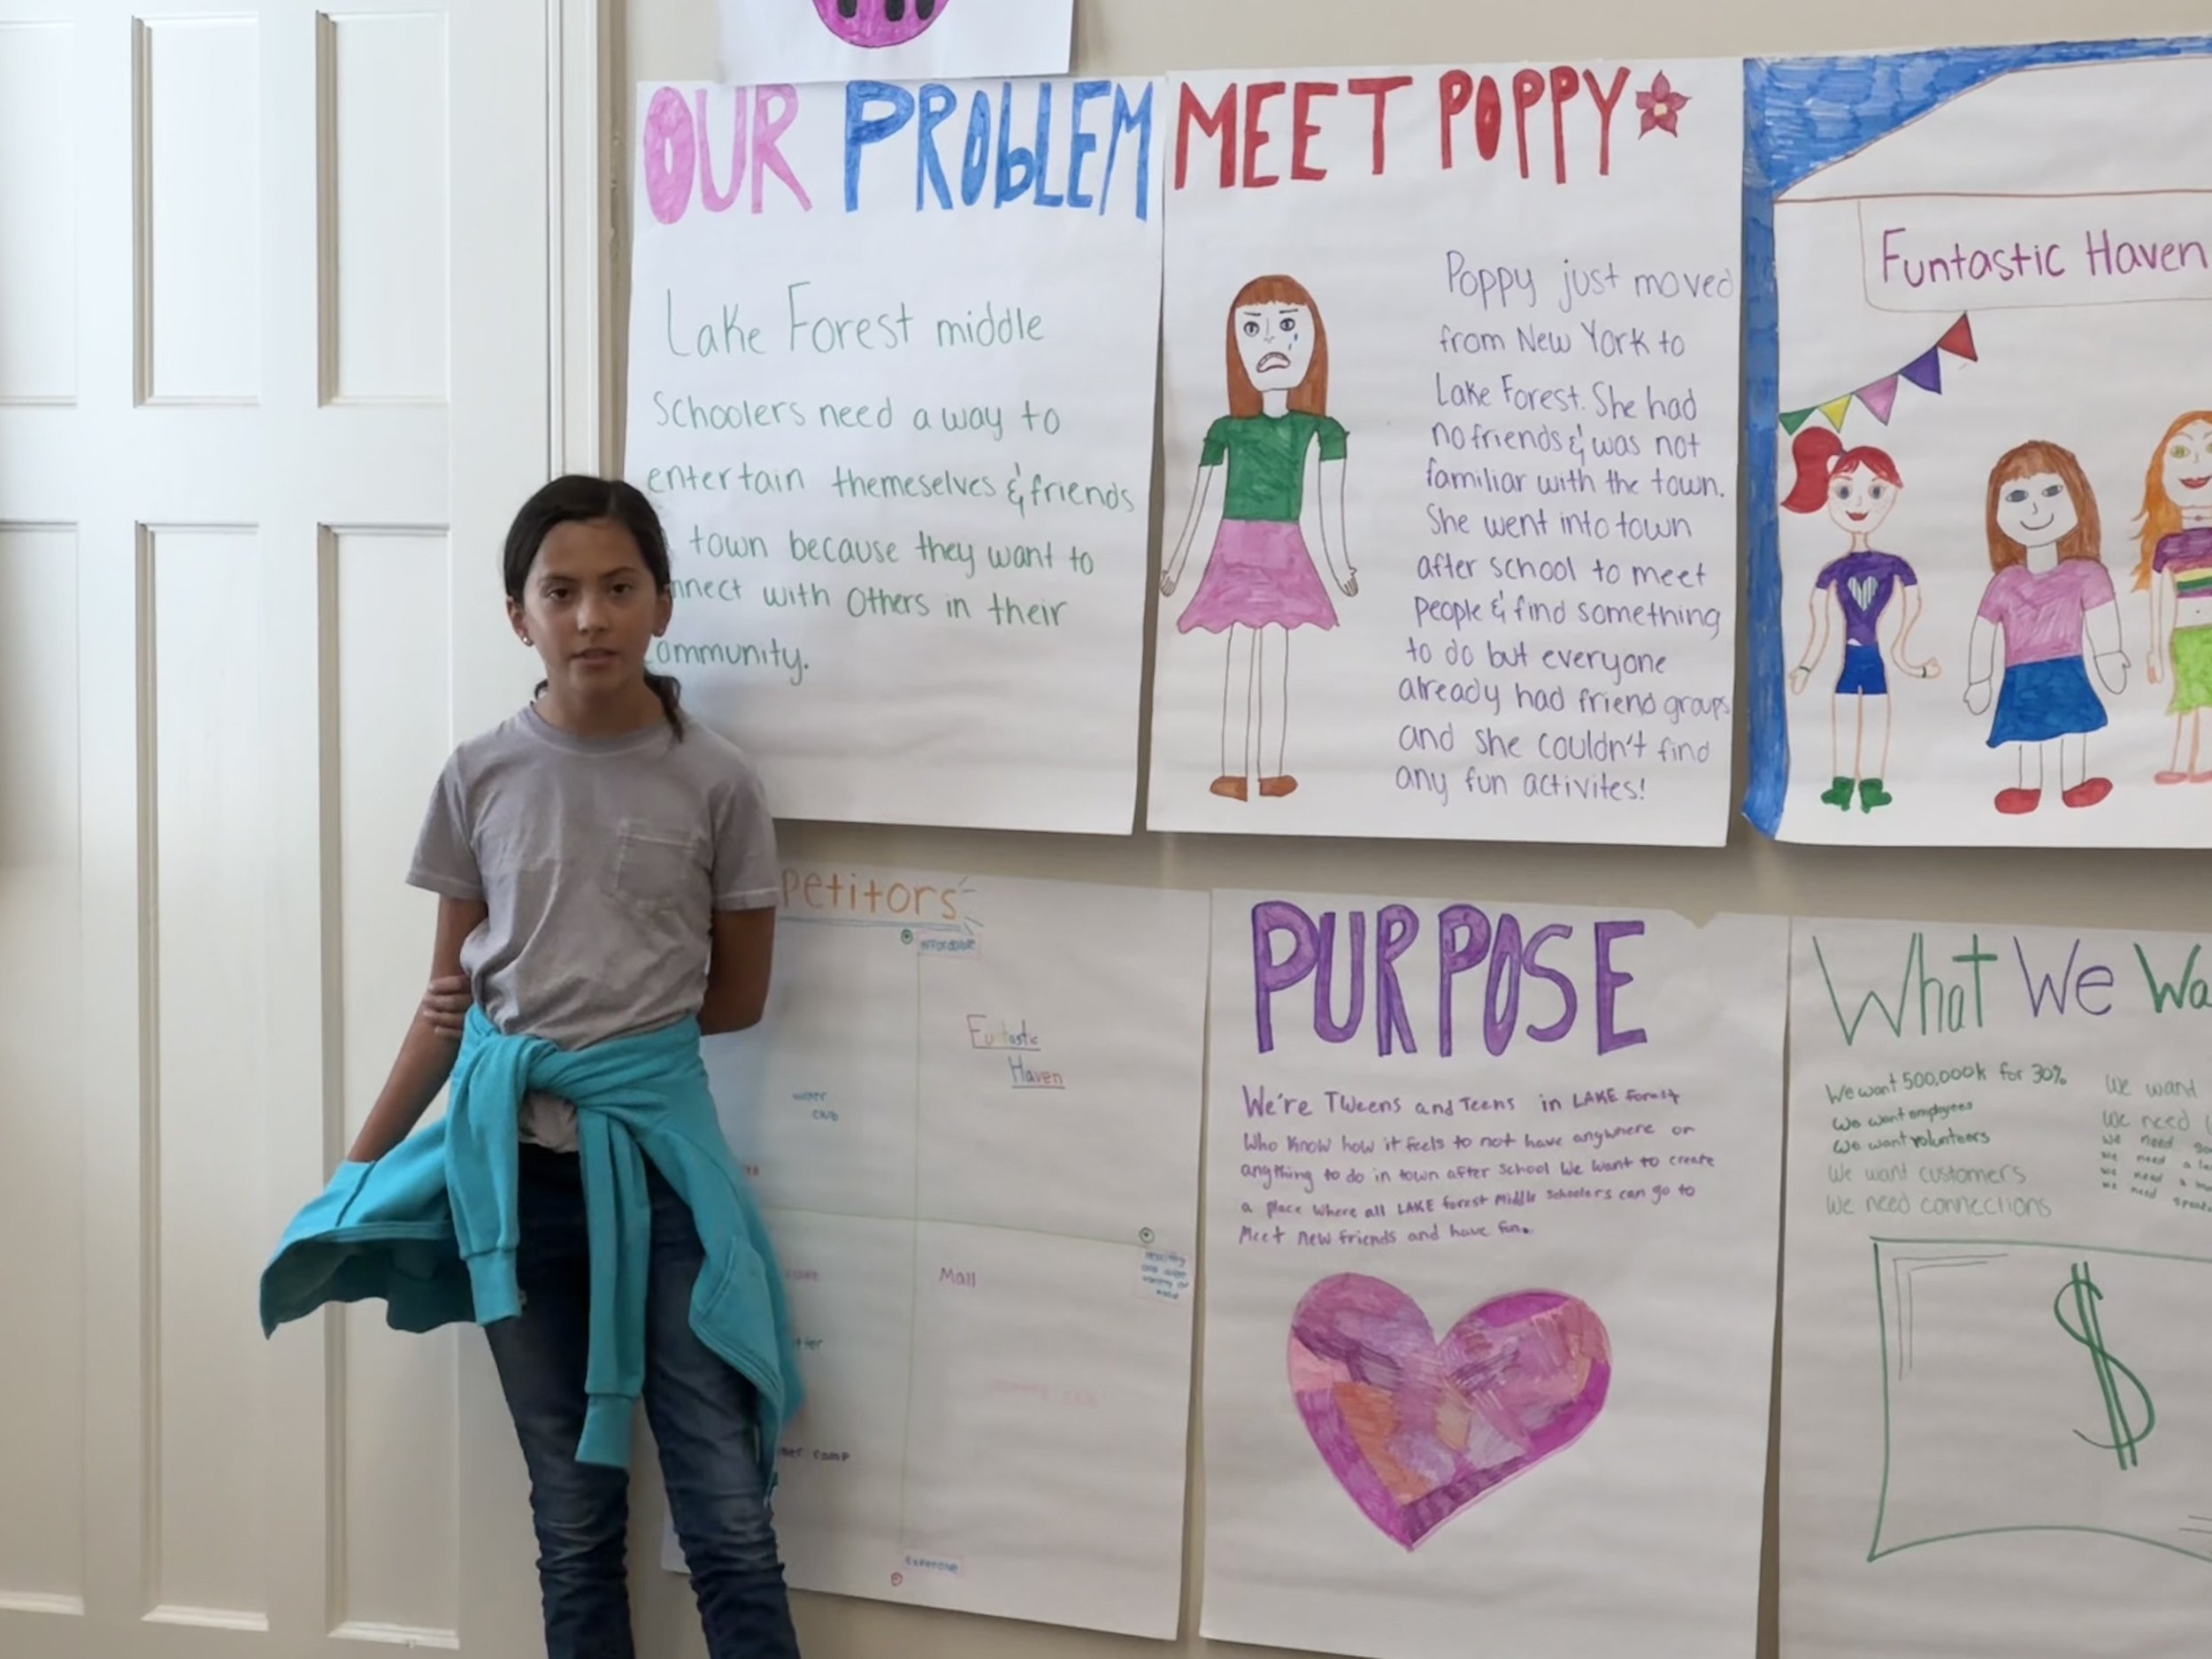 OUR PROBLEM
Lake Forest middle
Schoolers need a way to
entertain themeselves & friends
town because they want to
nnect with others in their
ommunity.
MEET POPPY
Poppy just moved
from New York to
Lake Forest. She had
no friends & was not
familiar with the town.
She went into town
after school to meet
people & find something
to do but everyone
already had friend groups
and she couldn't find
any fun activites!
Funtastic Haven
petitors
affordable
Funtastic
Haven
club
Mall
camp
expensive
PURPOSE
We're Tweens and Teens in LAKE Forest
Who know how it feels to not have anywhere or
anything to do in town after school We want to create
a place where all LAKE forest Middle Schoolers can go to
Meet new friends and have fun.
What We Wa
We want 500,000k for 30%
We want employees
We want volunteers
We want customers
We need connections
We want
We need
We need
We need a
We need a
We need
$